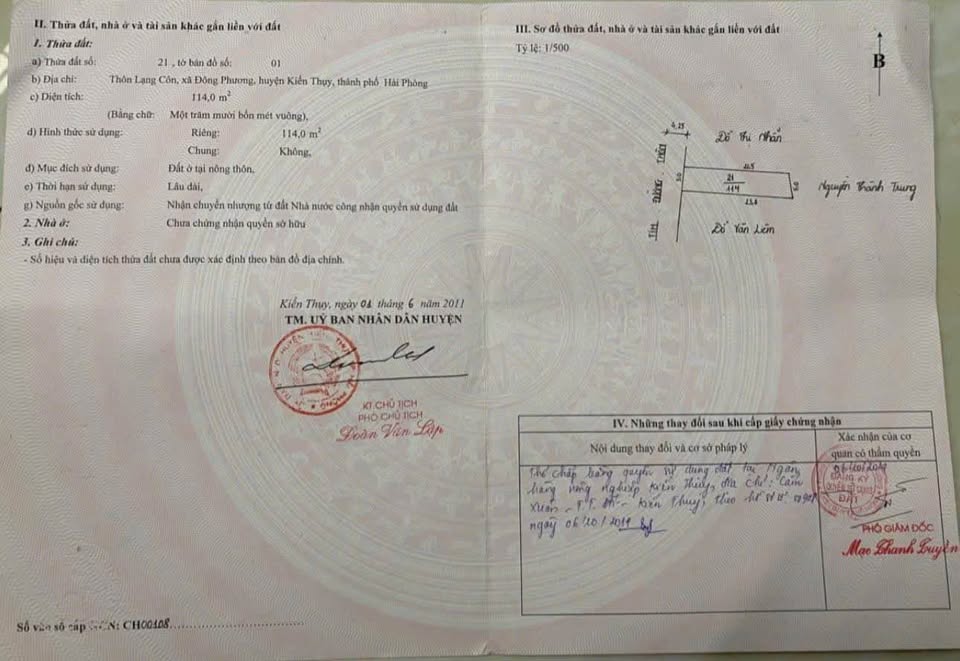 II. Thửa đất, nhà ở và tài sản khác gắn liền với đất
1. Thửa đất:
a) Thửa đất số: 21 , tờ bản đồ số: 01
b) Địa chỉ: Thôn Lạng Côn, xã Đông Phương, huyện Kiến Thụy, thành phố Hải Phòng
c) Diện tích: 114,0 m²
(Bằng chữ: Một trăm mười bốn mét vuông),
d) Hình thức sử dụng: Riêng: 114,0 m²
Chung: Không,
đ) Mục đích sử dụng: Đất ở tại nông thôn,
e) Thời hạn sử dụng: Lâu dài,
g) Nguồn gốc sử dụng: Nhận chuyển nhượng từ đất Nhà nước công nhận quyền sử dụng đất
2. Nhà ở: Chưa chứng nhận quyền sở hữu
3. Ghi chú:
- Số hiệu và diện tích thửa đất chưa được xác định theo bản đồ địa chính.
Kiến Thụy, ngày 01 tháng 6 năm 2011
TM. UỶ BAN NHÂN DÂN HUYỆN
KT.CHỦ TỊCH
PHÓ CHỦ TỊCH
Đoàn Văn Lập
Số vào sổ cấp GCN: CH00108
III. Sơ đồ thửa đất, nhà ở và tài sản khác gắn liền với đất
Tỷ lệ: 1/500
B
4,25
Đỗ Thị Nhẫn
TIM ĐƯỜNG THÔN
5.0
21
114
5.0
23,8
Nguyễn Thành Trung
Đỗ Văn Liên
IV. Những thay đổi sau khi cấp giấy chứng nhận
Nội dung thay đổi và cơ sở pháp lý
Xác nhận của cơ
quan có thẩm quyền
Thế chấp bằng quyền sử dụng đất tại Ngân
hàng nông nghiệp Kiến Thụy, địa chỉ: Cẩm
Xuân - Kiến Thụy, theo hồ sơ số
ngày 06/10/2011
ĐĂNG KÝ
QUYỀN SỬ DỤNG
ĐẤT
PHÓ GIÁM ĐỐC
Mạc Thanh Truyền